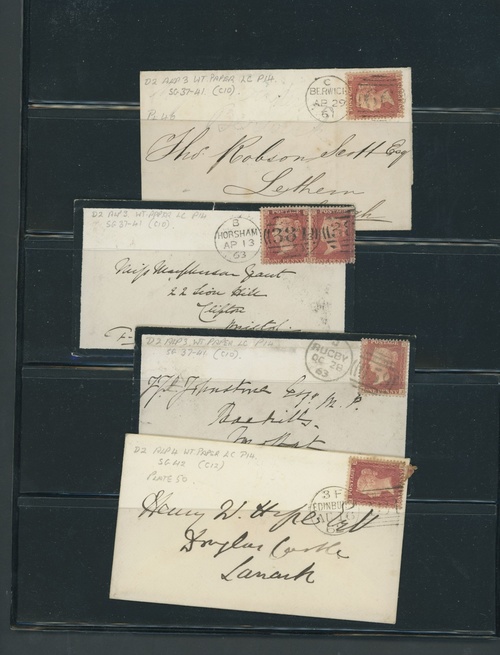 D2 ALP 3 WT. PAPER LC P14.
SG 37-41 (C10)
PL 46
C
BERWICK
AP 29
61
Thos. Robson Scott Esq
Lethem
D2 ALP 3. WT. PAPER LC P14
SG 37-41 (C10)
B
HORSHAM
AP 13
63
Miss Macpherson Grant
22 Sion Hill
Clifton
Bristol
D2 ALP 3 WT. PAPER LC P14.
SG 37-41 (C10).
RUGBY
OC 28
63
Johnstone Esqr M. P.
Moffat
D2 ALP 4 WT. PAPER LC P14.
SG 42 (C12)
PLATE 50
3 F
EDINBURGH
Henry W. Hope
Douglas Castle
Lanark